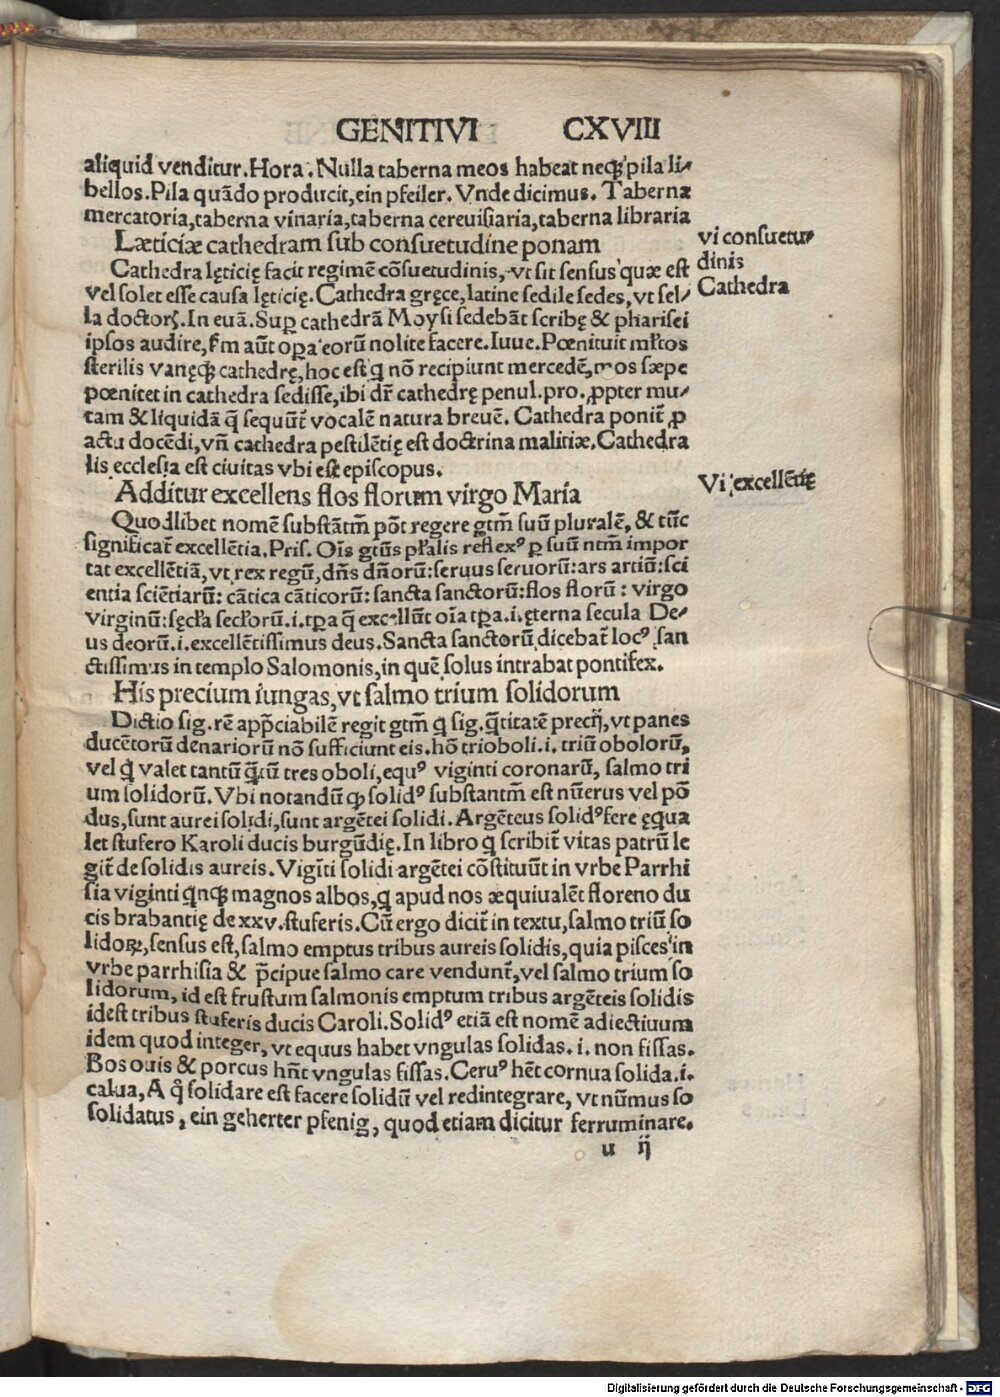 GENITIVI CXVIII
aliquid venditur. Hora. Nulla taberna meos habeat neqꝫ pila li⸗
bellos. Pila quādo producit, ein pfeiler. Vnde dicimus. Taberna
mercatoria, taberna vinaria, taberna cereuisiaria, taberna libraria
Læticiæ cathedram sub consuetudine ponam
vi consuetu⸗
dinis
Cathedra
Cathedra lęticię facit regimē cōsuetudinis, vt sit sensus quæ est
vel solet esse causa lęticię. Cathedra gręce, latine sedile sedes, vt sel⸗
la doctorꝫ. In euā. Suꝑ cathedrā Moysi sedebāt scribę & pharisei
ipsos audire, fm aūt oꝑa eorū nolite facere. Iuue. Pœnituit ml̃tos
sterilis vanęqꝫ cathedrę, hoc est q̃ nō recipiunt mercedē, mos sæpe
pœnitet in cathedra sedisse, ibi dr̃ cathedrę penul. pro. ꝓpter mu⸗
tam & liquidā q̃ sequūt̃ vocalē natura breuē. Cathedra ponit̃ ꝓ
actu docēdi, vñ cathedra pestilētię est doctrina malitiæ. Cathedra
lis ecclesia est ciuitas vbi est episcopus.
Additur excellens flos florum virgo Maria
Vi excellētię
Quodlibet nomē substātm̃ põt regere gtm̃ suū pluralē, & tūc
significat̃ excellētia. Pris. Oīs gtũs pl̃alis reflexꝰ ꝑ suū ntm̃ impor
tat excellētiā, vt rex regū, dñs dñorū: seruus seruorū: ars artiū: sci
entia sciētiarū: cātica cāticorū: sancta sanctorū: flos florū: virgo
virginū: sęcl̃a secl̃orū. i. tꝑa q̃ excellūt oīa tꝑa. i. ęterna secula De⸗
us deorū. i. excellētissimus deus. Sancta sanctorū dicebat̃ locꝰ san
ctissimus in templo Salomonis, in quē solus intrabat pontifex.
His precium iungas, vt salmo trium solidorum
Dictio sig. rē app̃ciabilē regit gtm̃ q̃ sig. q̃titatē precij, vt panes
ducētorū denariorū nō sufficiunt eis. hō trioboli. i. triū obolorū,
vel q̃ valet tantū q̃tū tres oboli, equꝰ viginti coronarū, salmo tri
um solidorū. Vbi notandū ꝙ solidꝰ substantm̃ est nūerus vel pō
dus, sunt aurei solidi, sunt argētei solidi. Argēteus solidꝰ fere ęqua
let stufero Karoli ducis burgūdię. In libro q̃ scribit̃ vitas patrū le
git̃ de solidis aureis. Vigīti solidi argētei cōstituūt in vrbe Parrhi
sia viginti q̃nqꝫ magnos albos, q̃ apud nos æquiualēt floreno du
cis brabantię de xxv. stuferis. Cū ergo dicit̃ in textu, salmo triū so
lidoꝝ, sensus est, salmo emptus tribus aureis solidis, quia pisces in
vrbe parrhisia & p̃cipue salmo care vendunt̃, vel salmo trium so
lidorum, id est frustum salmonis emptum tribus argēteis solidis
idest tribus stuferis ducis Caroli. Solidꝰ etiā est nomē adiectiuum
idem quod integer, vt equus habet vngulas solidas. i. non fissas.
Bos ouis & porcus hñt vngulas fissas. Ceruꝰ hēt cornua solida. i.
calua, A q̃ solidare est facere solidū vel redintegrare, vt nūmus so
solidatus, ein geherter pfenig, quod etiam dicitur ferruminare.
u ij
Digitalisierung gefördert durch die Deutsche Forschungsgemeinschaft - DFG